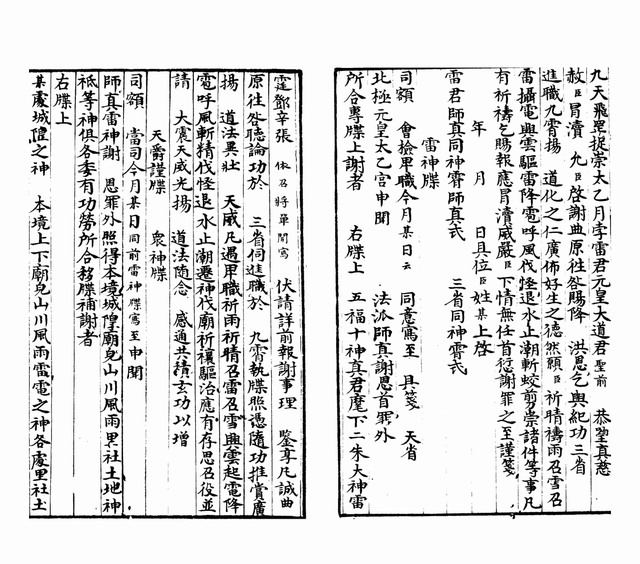 九天飛罡捉祟太乙月孛雷君元皇大道君聖前　恭望真慈
赦臣冒瀆　允臣啓謝曲原徃咎賜降　洪恩乞與紀功三省
進職九霄揚　道化之仁廣佈好生之德然願臣祈晴禱雨召雪召
雷攝電興雲驅雷降雹呼風伐怪退水止潮斬蛟剪祟諸件等事凡
有祈禱乞賜報應冒瀆威嚴臣下情無任首愆謝罪之至謹箋
年　月　日具位臣姓某上啓
雷君師真同神霄師真式　三省同神霄式
雷神牒
司額　會檢畢職今月某日云　同意寫至　具箋　天省
北極元皇太乙宮申聞　法派師真謝恩首罪外
所合專牒上謝者　右牒上　五福十神真君麾下二朱大神雷
霆鄧辛張　依召將單開寫　伏請詳前報謝事理　鑒享凡誠曲
原徃咎聴論功於　三省伺進職於　九霄執牒照憑隨功推賞廣
揚　道法異壯　天威凡遇畢職祈雨祈晴召雷召雪興雲起電降
雹呼風斬精伐怪退水止潮遷神伐廟祈禳驅治應有存思召役並
請　大震天威光揚　道法隨念　感通共積玄功以增
天爵謹牒　衆神牒
司額　當司今月某日同前雷神牒寫至申聞
師真雷神謝　恩罪外照得本境城隍廟皃山川風雨里社土地神
祗等神俱各委有功勞所合移牒補謝者
右牒上
某處城隍之神　本境上下廟皃山川風雨雷電之神各處里社土